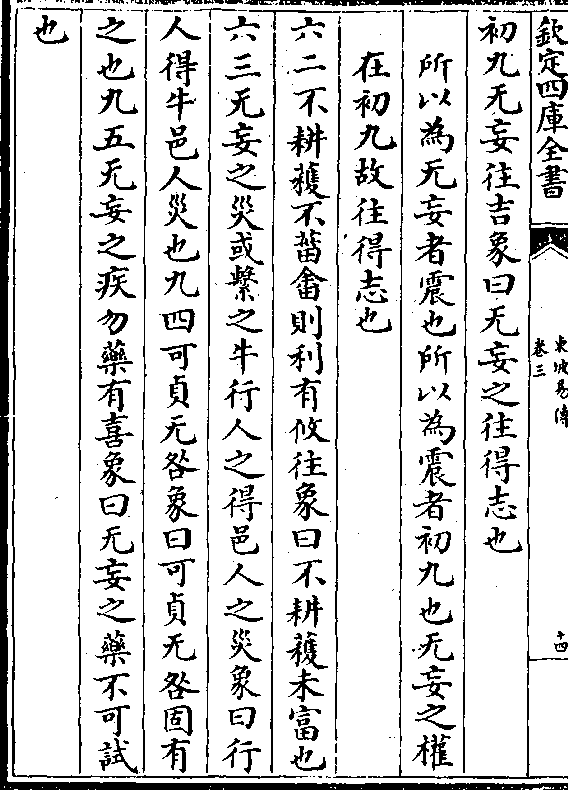 欽定四庫全書
東坡易傳
卷三
十四
初九无妄往吉象曰无妄之往得志也
所以為无妄者震也所以為震者初九也无妄之權
在初九故往得志也
六二不耕穫不菑畬則利有攸往象曰不耕穫未富也
六三无妄之災或繫之牛行人之得邑人之災象曰行
人得牛邑人災也九四可貞无咎象曰可貞无咎固有
之也九五无妄之疾勿藥有喜象曰无妄之藥不可試
也